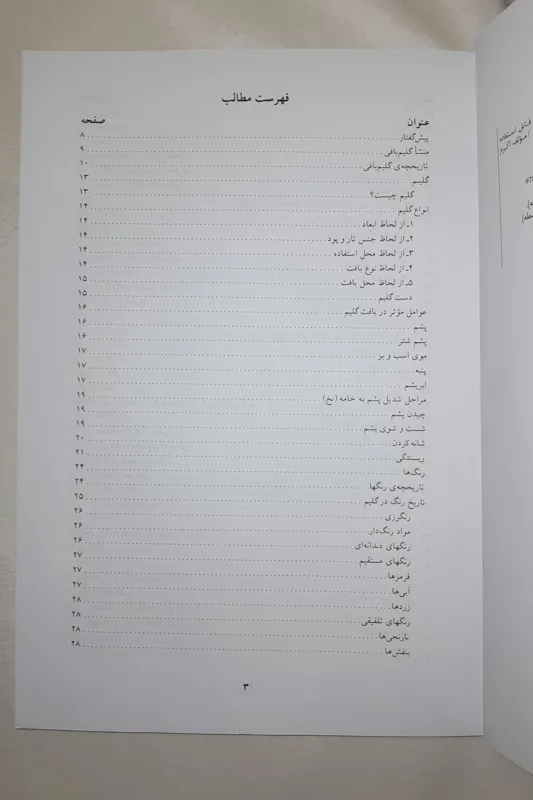 فهرست مطالب
عنوان صفحه
پیش‌گفتار ۸
منشأ گلیم‌بافی ۹
تاریخچه‌ی گلیم‌بافی ۱۰
گلیم ۱۳
گلیم چیست؟ ۱۳
انواع گلیم ۱۴
۱ـ از لحاظ ابعاد ۱۴
۲ـ از لحاظ جنس تار و پود ۱۴
۳ـ از لحاظ محل استفاده ۱۴
۴ـ از لحاظ نوع بافت ۱۴
۵ـ از لحاظ محل بافت ۱۵
دست گلیم ۱۵
عوامل مؤثر در بافت گلیم ۱۶
پشم ۱۶
پشم شتر ۱۶
موی اسب و بز ۱۷
پنبه ۱۷
ابریشم ۱۷
مراحل تبدیل پشم به خامه (نخ) ۱۹
چیدن پشم ۱۹
شست و شوی پشم ۱۹
شانه کردن ۲۰
ریسندگی ۲۱
رنگ‌ها ۲۴
تاریخچه‌ی رنگها ۲۴
تاریخ رنگ در گلیم ۲۵
رنگرزی ۲۶
مواد رنگ‌دار ۲۶
رنگهای دندانه‌ای ۲۶
رنگهای مستقیم ۲۷
قرمزها ۲۷
آبی‌ها ۲۷
زردها ۲۸
رنگهای تلفیقی ۲۸
نارنجی‌ها ۲۸
بنفش‌ها ۲۸
۳
قابل استفاده
/ مؤلف اکرم